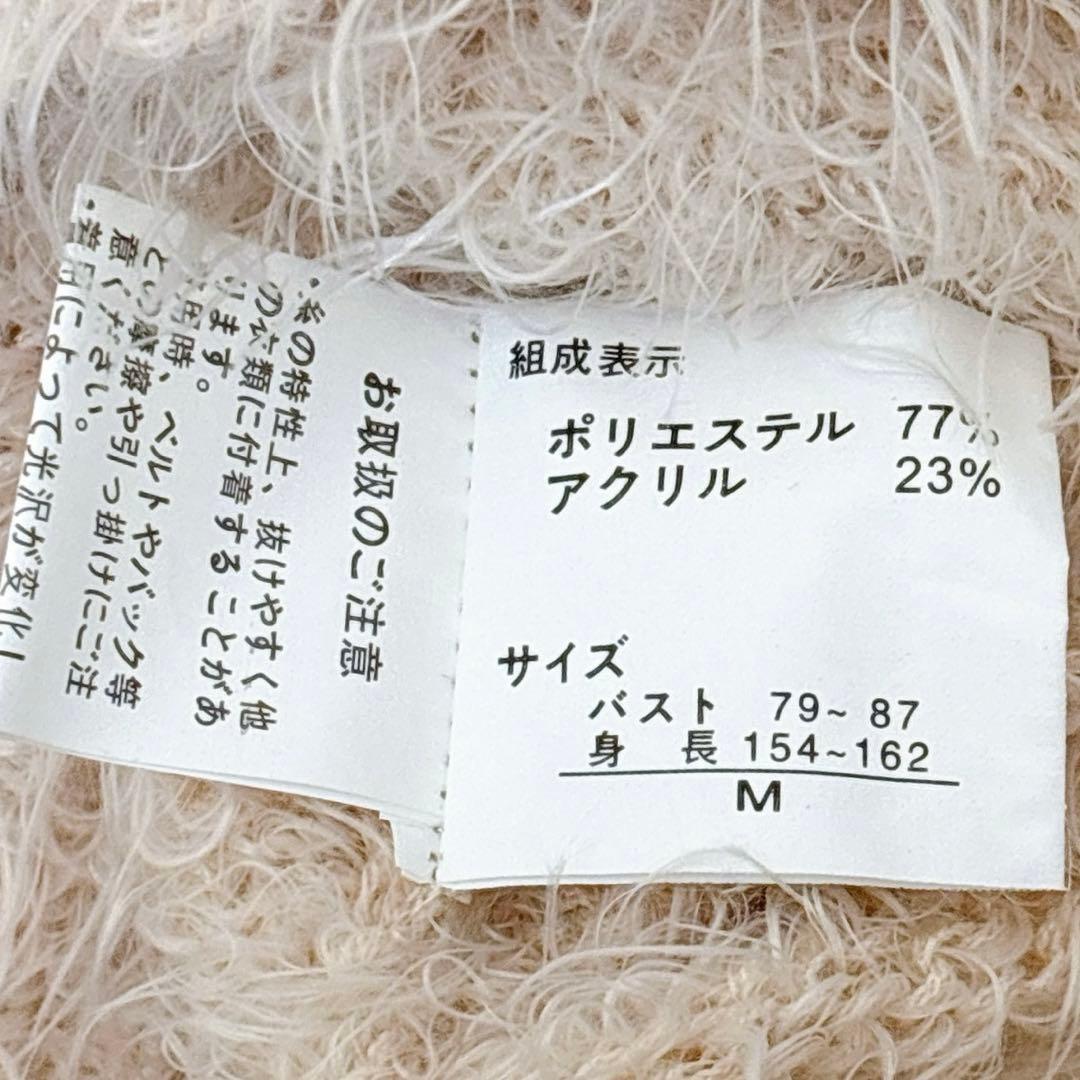 組成表示
ポリエステル 77%
アクリル 23%
サイズ
バスト 79~ 87
身 長 154~162
M
お取扱のご注意
・糸の特性上、抜けやすく他
の衣類に付着することがあ
ります。
用時、ベルトやバック等
との摩擦や引っ掛けにご注
意ください。
・着用によって光沢が変化し